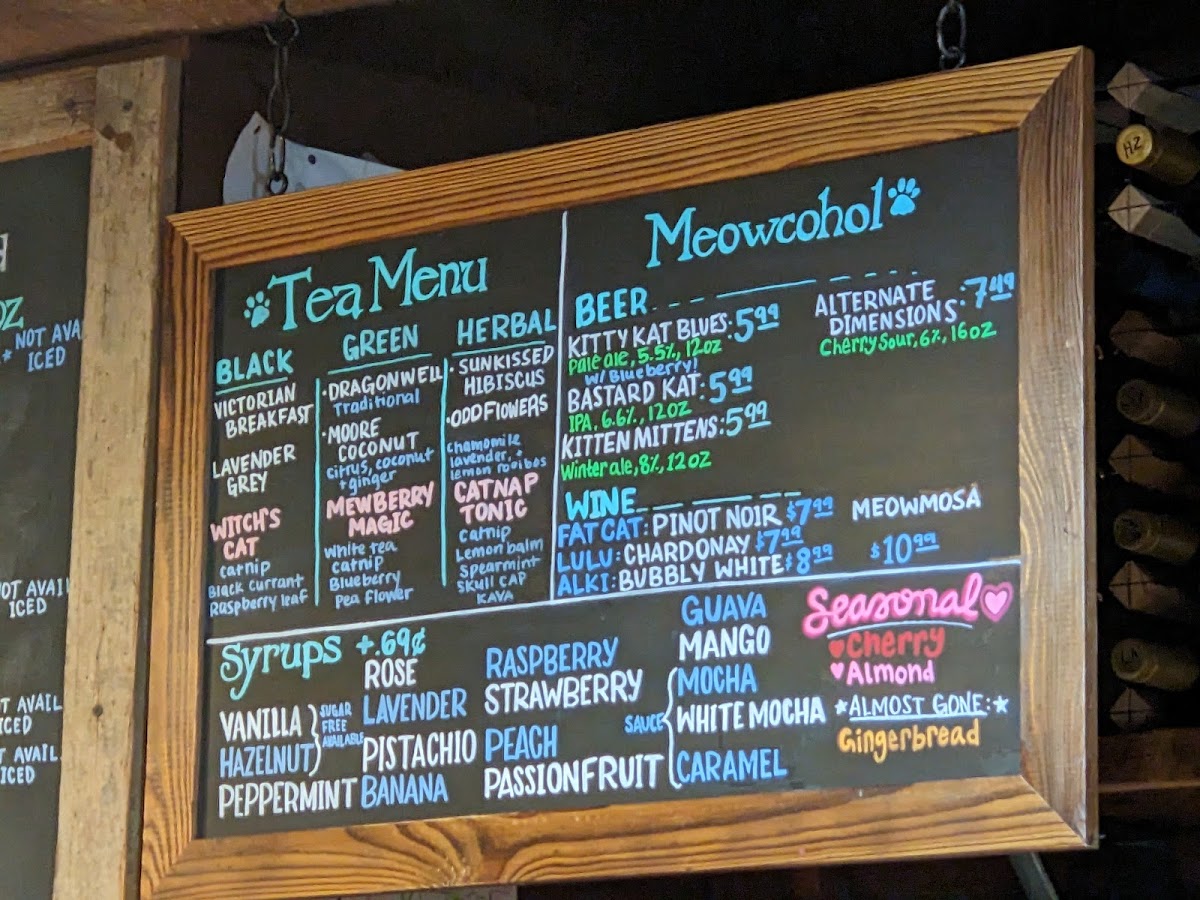 OZ
* NOT AVA
ICED
NOT AVAIL
ICED
T AVAIL
ICED
T AVAIL.
ICED
Tea Menu
BLACK
VICTORIAN
BREAKFAST
LAVENDER
GREY
WITCH'S
CAT
catnip
Black Currant
Raspberry leaf
GREEN
·DRAGONWELL
Traditional
·MOORE
COCONUT
citrus, coconut
+ ginger
MEWBERRY
MAGIC
White tea
catnip
Blueberry
Pea flower
HERBAL
·SUNKISSED
HIBISCUS
·ODD FLOWERS
chamomile
lavender, +
lemon rooibos
CATNAP
TONIC
catnip
Lemon balm
Spearmint
SKULL CAP
KAVA
Meowcohol
BEER
KITTY KAT BLUES: 5.99
Pale ale, 5.5%, 12oz
w/ Blueberry!
BASTARD KAT: 5.99
IPA, 6.6%, 12OZ
KITTEN MITTENS: 5.99
Winter ale, 8%, 12oz
ALTERNATE
DIMENSIONS: 7.49
Cherry Sour, 6%, 16oz
WINE
FAT CAT: PINOT NOIR $7.99
LULU: CHARDONAY $7.99
ALKI: BUBBLY WHITE $8.99
MEOWMOSA
$10.99
Syrups +.69¢
VANILLA
HAZELNUT
SUGAR
FREE
AVAILABLE
PEPPERMINT
ROSE
LAVENDER
PISTACHIO
BANANA
RASPBERRY
STRAWBERRY
PEACH
PASSIONFRUIT
GUAVA
MANGO
SAUCE
MOCHA
WHITE MOCHA
CARAMEL
Seasonal
Cherry
Almond
*ALMOST GONE:*
Gingerbread
HZ